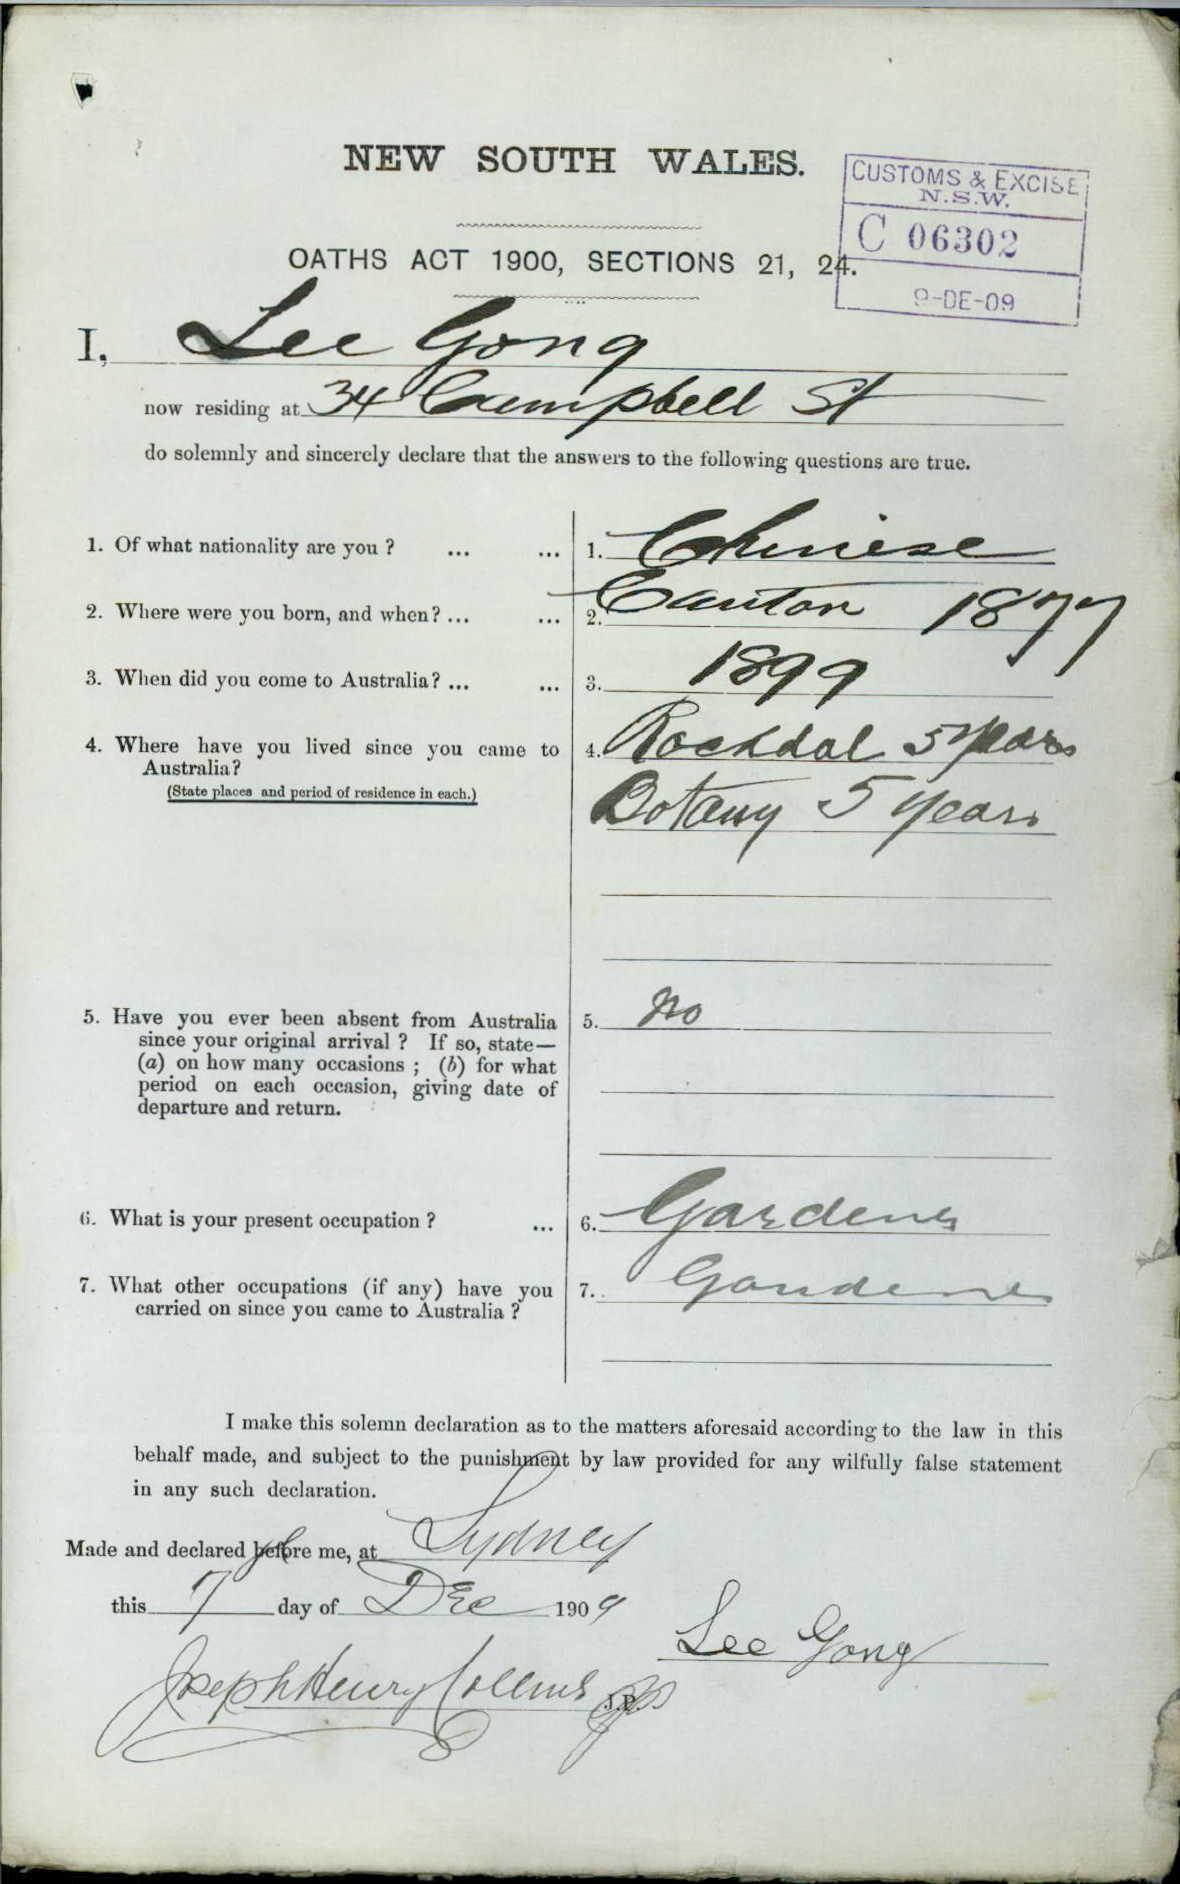 NEW SOUTH WALES.
CUSTOMS & EXCISE
N.S.W.
C 06302
9-DE-09
OATHS ACT 1900, SECTIONS 21, 24.
I, Lee Gong
now residing at 34 Campbell St
do solemnly and sincerely declare that the answers to the following questions are true.
1. Of what nationality are you ? ... ... 1. Chinese
2. Where were you born, and when? ... ... 2. Canton 1877
3. When did you come to Australia? ... ... 3. 1899
4. Where have you lived since you came to 4. Rockdal 5 years
Australia?
(State places and period of residence in each.)
Botany 5 years
5. Have you ever been absent from Australia 5. No
since your original arrival ? If so, state—
(a) on how many occasions ; (b) for what
period on each occasion, giving date of
departure and return.
6. What is your present occupation ? ... 6. Gardener
7. What other occupations (if any) have you 7. Gardener
carried on since you came to Australia ?
I make this solemn declaration as to the matters aforesaid according to the law in this
behalf made, and subject to the punishment by law provided for any wilfully false statement
in any such declaration.
Made and declared before me, at Sydney
this 7 day of Dec 1909
Lee Gong
Joseph Henry Collins J.P.